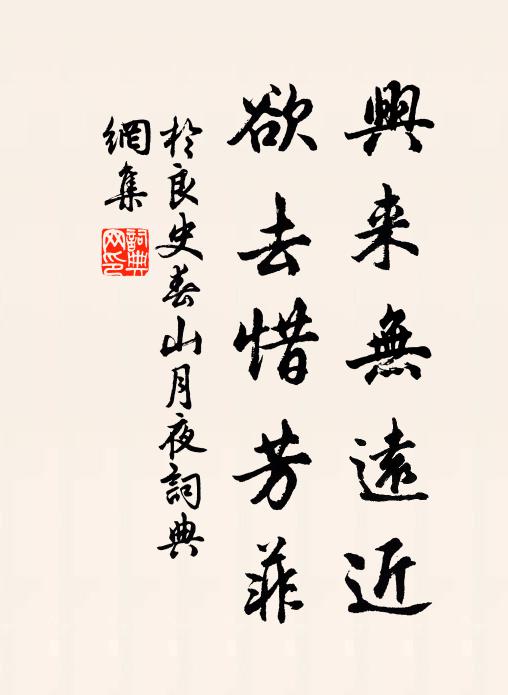 興来無遠近
欲去惜芳菲
於良史春山月夜詞典
網集
詞典網印